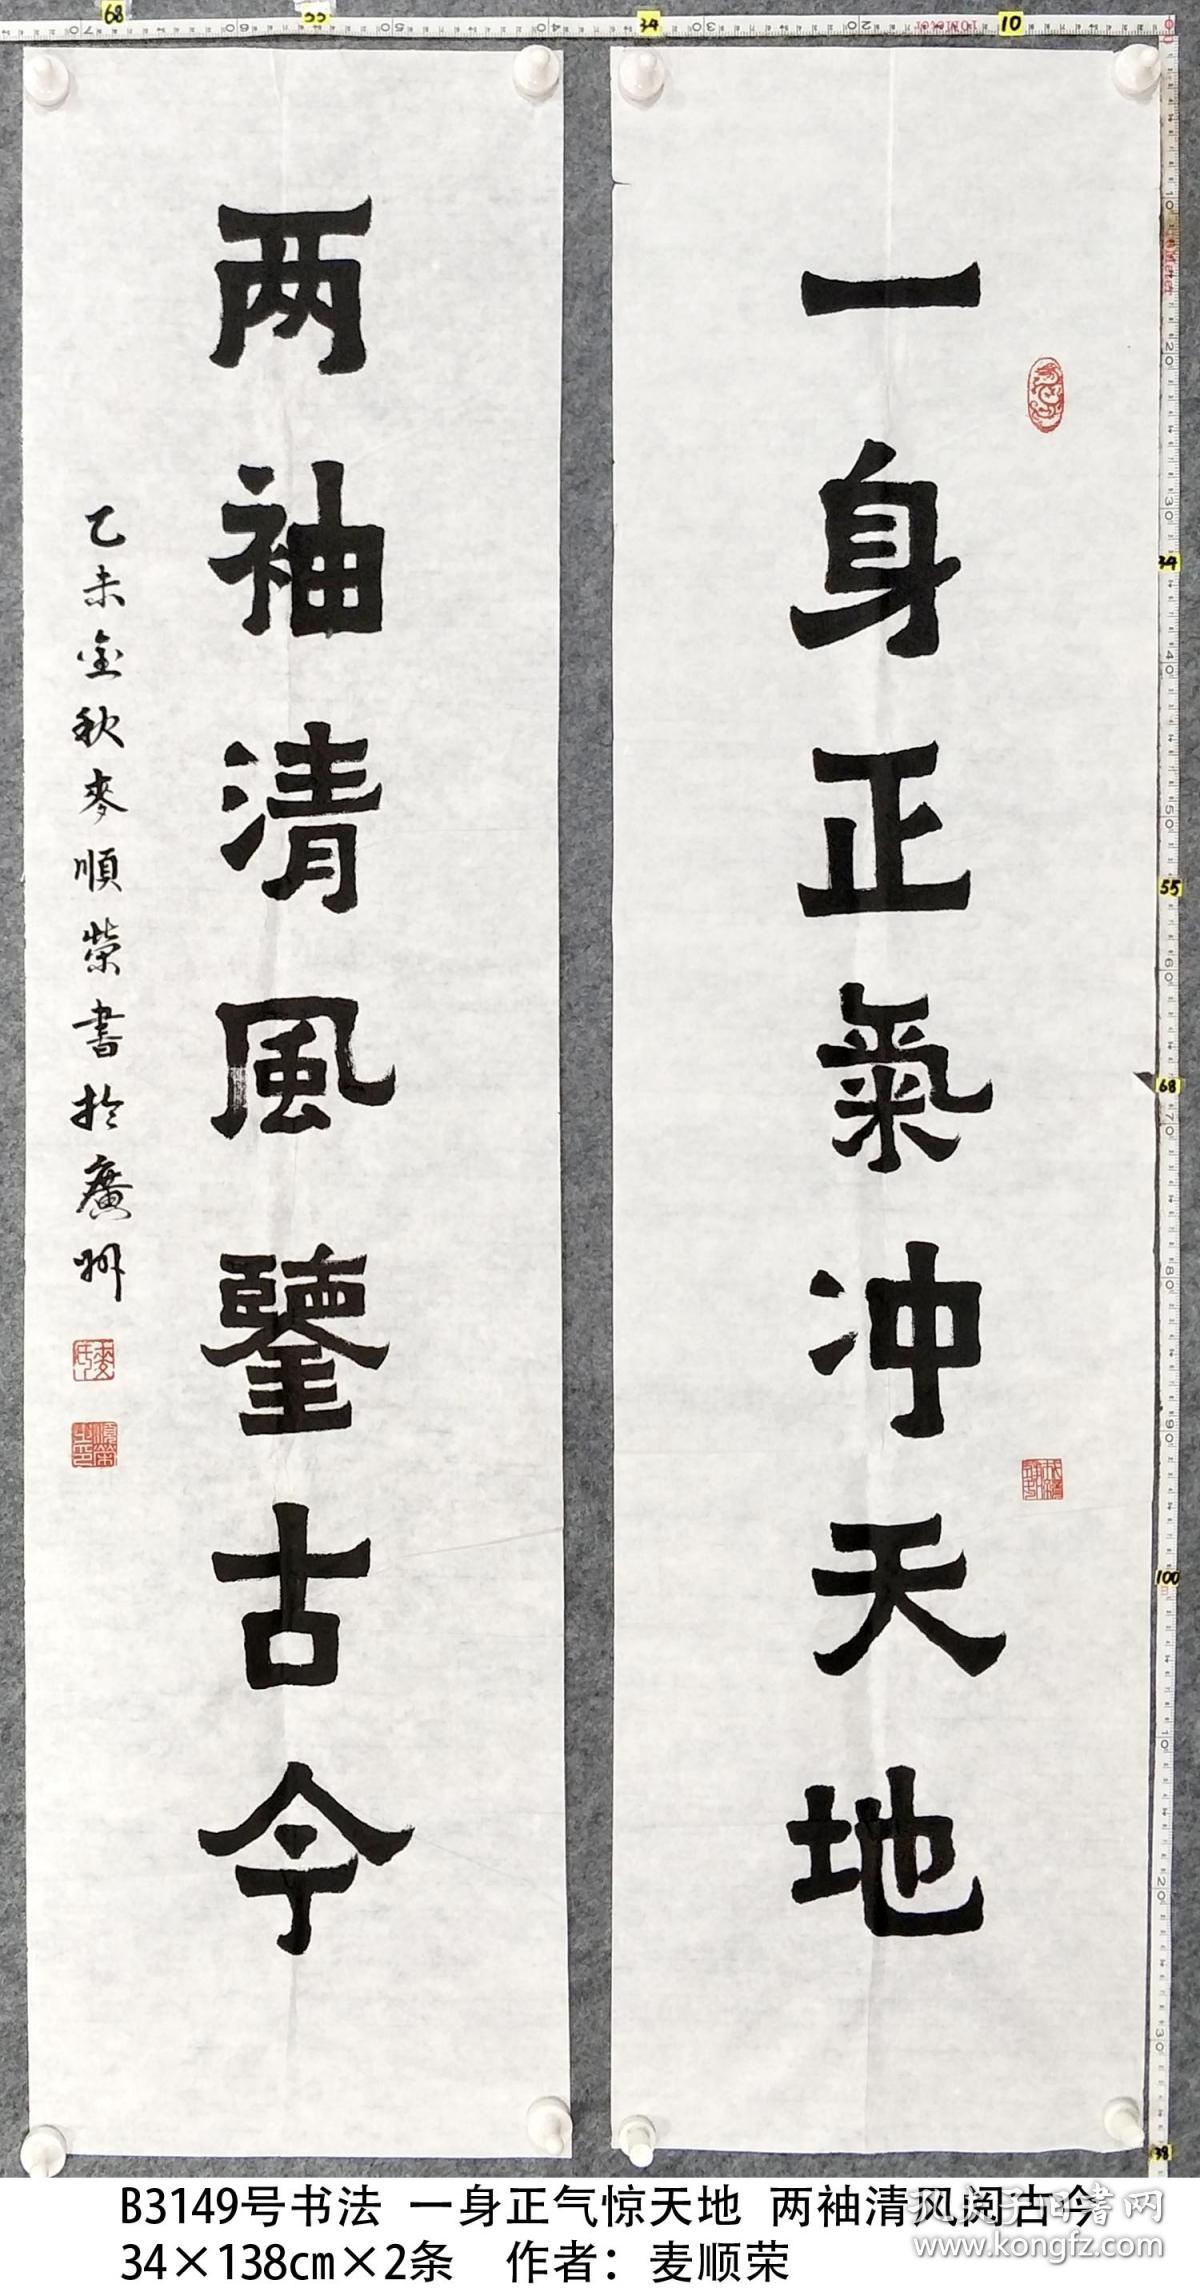 一身正氣冲天地
两袖清風鑒古今
乙未金秋麥順榮書於廣州
B3149号书法 一身正气惊天地 两袖清风阅古今
34×138㎝×2条 作者：麦顺荣
孔夫子旧书网
www.kongfz.com